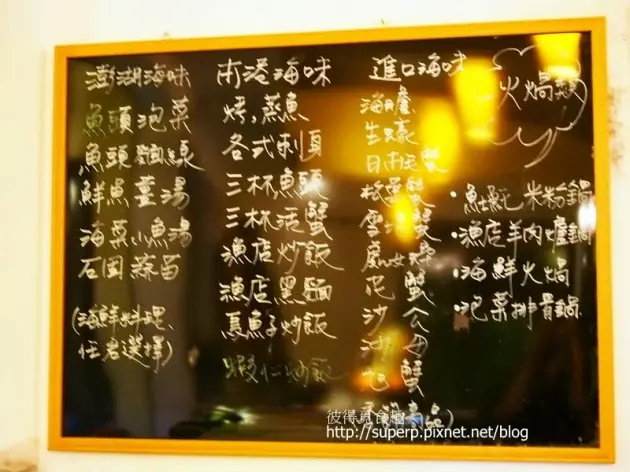 澎湖海味
魚頭泡菜
魚頭麵線
鮮魚薑湯
海菜小魚湯
石回蒜苗
(海鮮料理、
任君選擇)
南港海味
烤,蒸魚
各式刺身
三杯魚頭
三杯活蟹
漁店炒飯
漁店黑麵
烏魚子炒飯
蝦仁炒飯
進口海味
海膽
生蠔
處女蟳
花蟹
沙公
沙母
火鍋類
·魚肚米粉鍋
·漁店羊肉爐鍋
·海鮮火鍋
·泡菜排骨鍋
彼得覓食趣
http://superp.pixnet.net/blog